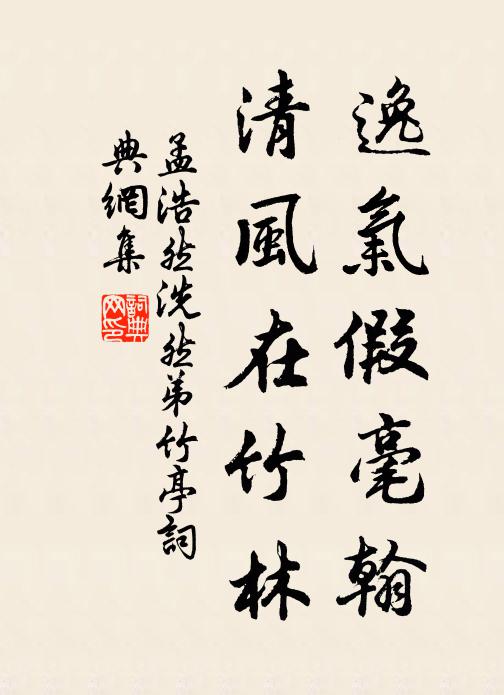 逸氣假毫翰
清風在竹林
孟浩然洗然弟竹亭詞
典網集
詞典网印